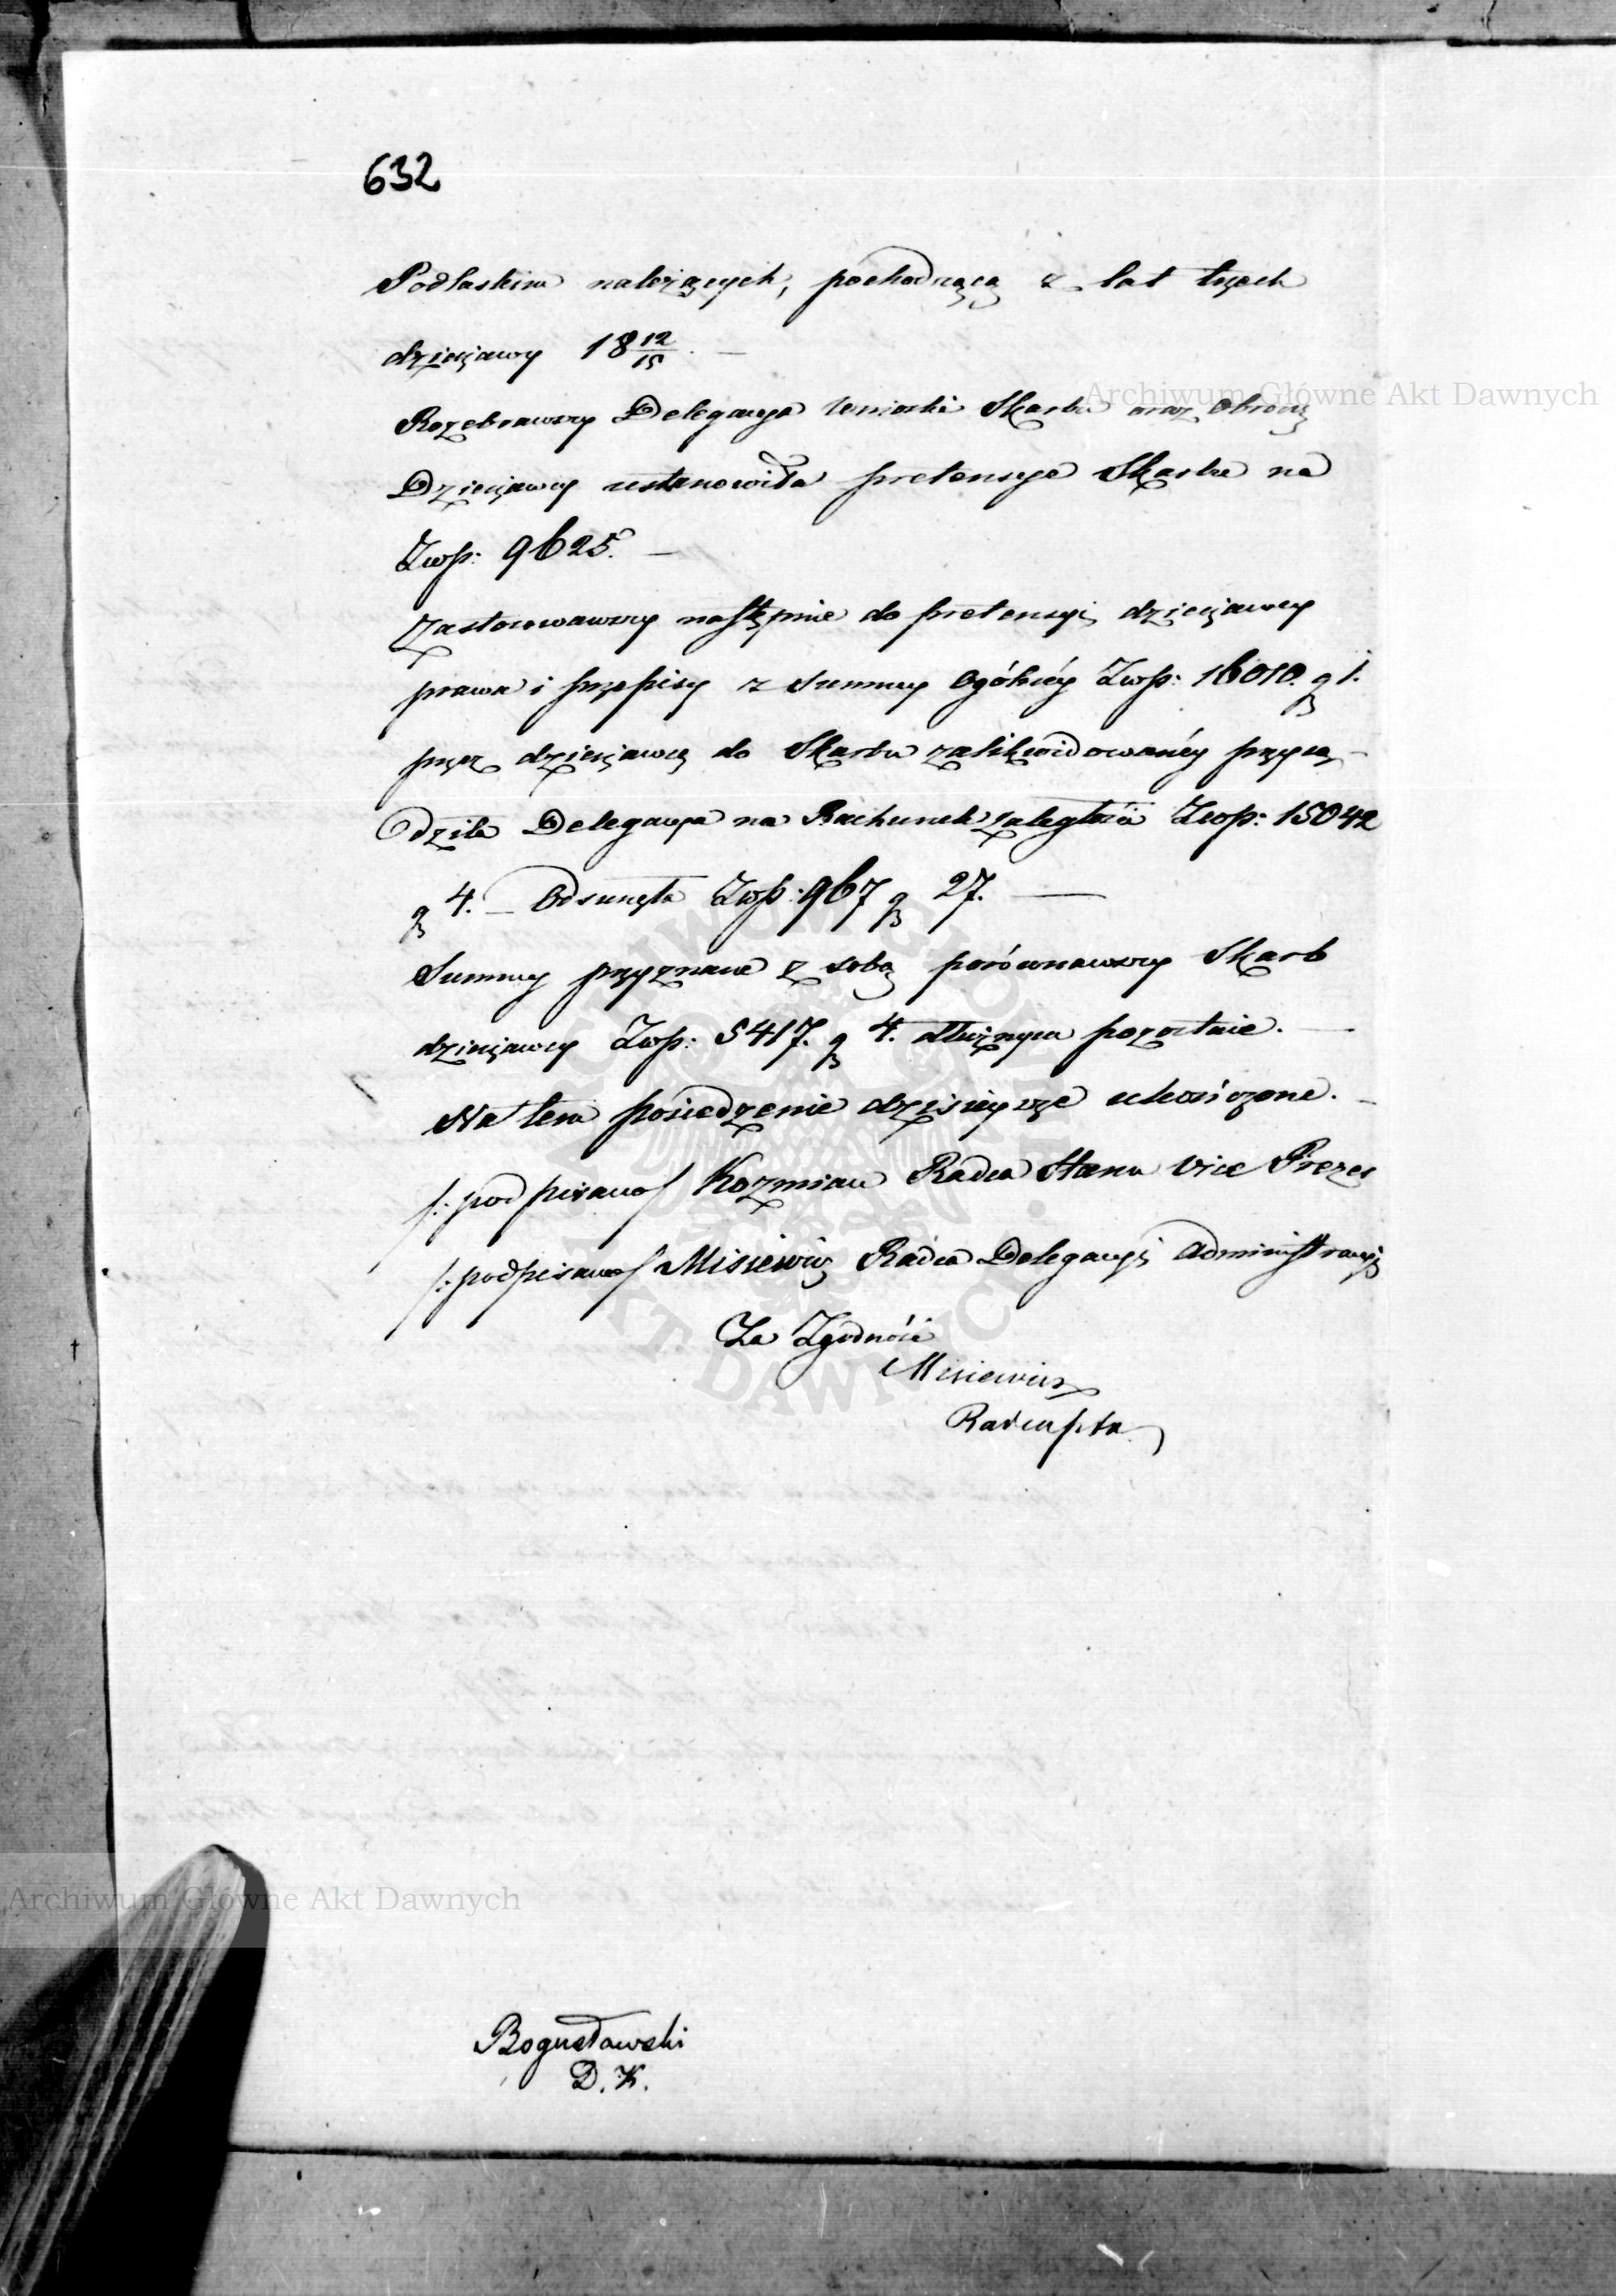 632
Podlaskim należących, pochodzącą z lat trzech
dzierżawy 18 12/15. —
Rozebrawszy Delegacya wnioski Skarbu oraz obronę
Dzierżawcy ustanowiła pretensye Skarbu na
Złłp: 9625. —
Zastosowawszy następnie do pretensyi dzierżawcy
prawa i przepisy z Summy Ogólnéy Złłp: 16010. gr 1.
przez dzierżawcę do Skarbu zalikwidowanéy przysą-
dziła Delegacya na Rachunek zaległości Złłp: 15042
gr 4. — Odsunęła Złłp: 967 gr 27. —
Summy przyznane z sobą porównawszy Skarb
dzierżawcy Złłp: 5417. gr 4. dłużnym pozostaie. —
Na tem posiedzenie dzisieysze ukończone. —
/: podpisano/ Kozmian Radca Stanu Vice Prezes
/: podpisano/ Misiewicz Radca Delegacyi Administracyi
Za Zgodność
Misiewicz
Bogusławski
D. K.
Archiwum Główne Akt Dawnych
Archiwum Główne Akt Dawnych
ARCHIWUM GŁÓWNE AKT DAWNYCH